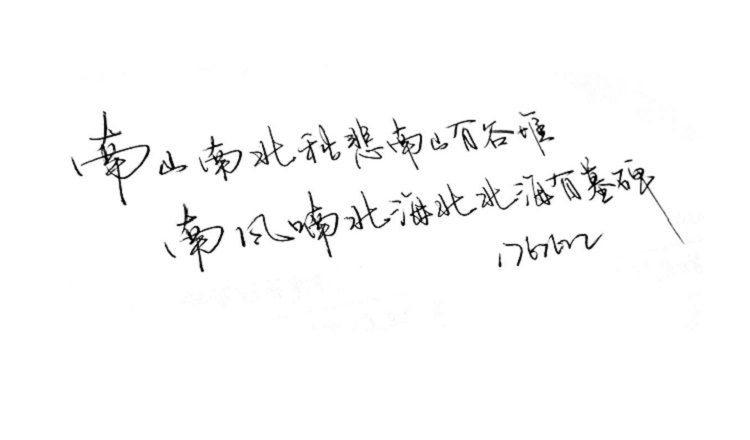 南山南北秋悲南山有谷堆
南风喃北海北北海有墓碑